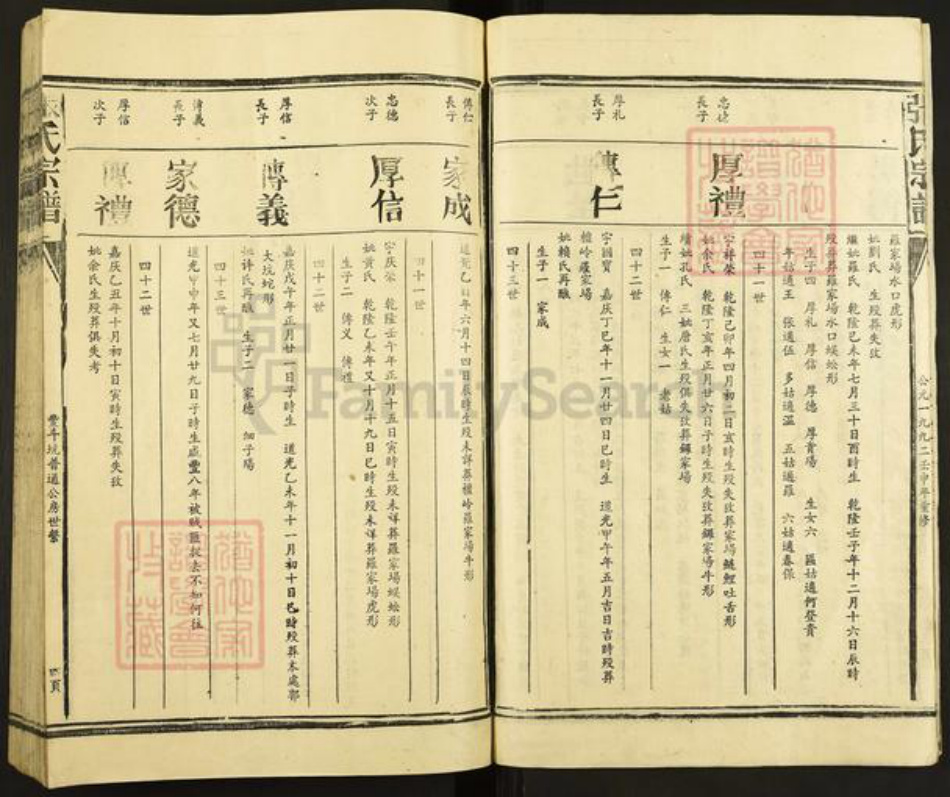 羅家場水口虎形
妣劉氏 生殁葬失攷
繼妣羅氏 乾隆己未年七月三十日酉時生 乾隆壬子年十二月十六日辰時
殁葬葬羅家場水口蜈蚣形
生子四 厚礼 厚信 厚德 厚貴殤 生女六 區姑適何登貴
年姑適王 張適伍 多姑適溫 五姑適羅 六姑適春保
四十一世
長子
厚禮
字榜榮 乾隆己卯年四月初二日亥時生殁失攷葬家場鰱鯉吐舌形
妣余氏 乾隆丁亥年正月廿六日子時生殁失攷葬羅家場牛形
續妣孔氏 三妣唐氏生殁俱失攷葬羅家場
生子一 傳仁 生女一 老姑
四十二世
厚礼
長子
傳仁
字國寶 嘉庆丁巳年十一月廿四日巳時生 道光甲午年五月吉日吉時殁葬
檀岭羅家場
妣賴氏再醮
生子一 家成
四十三世
傳仁
長子
家成
道光乙 年六月十四日辰時生殁未詳葬檀岭羅家場牛形
四十一世
忠德
次子
厚信
字庆榮 乾隆壬午年正月十五日寅時生殁未詳葬羅家場蜈蚣形
妣黄氏 乾隆乙未年又十月十九日巳時生殁未詳葬羅家場虎形
生子二 傳义 傳禮
四十二世
厚信
長子
傳義
嘉庆戊午年正月廿一日子時生 道光乙未年十一月初十日巳時殁葬木處鄂
大坑蛇形
妣许氏再醮 生子二 家德 细子殤
四十三世
傳義
長子
家德
道光甲申年又七月廿九日子時生咸豐八年被贼匪捉去不知何往
四十二世
厚信
次子
傳禮
嘉庆乙丑年十月初十日寅時生殁葬失攷
妣余氏生殁葬俱失考
張氏宗譜
公元一九九二壬申年重修
張氏宗譜
豐斗坑普通公房世系
頁
FamilySearch